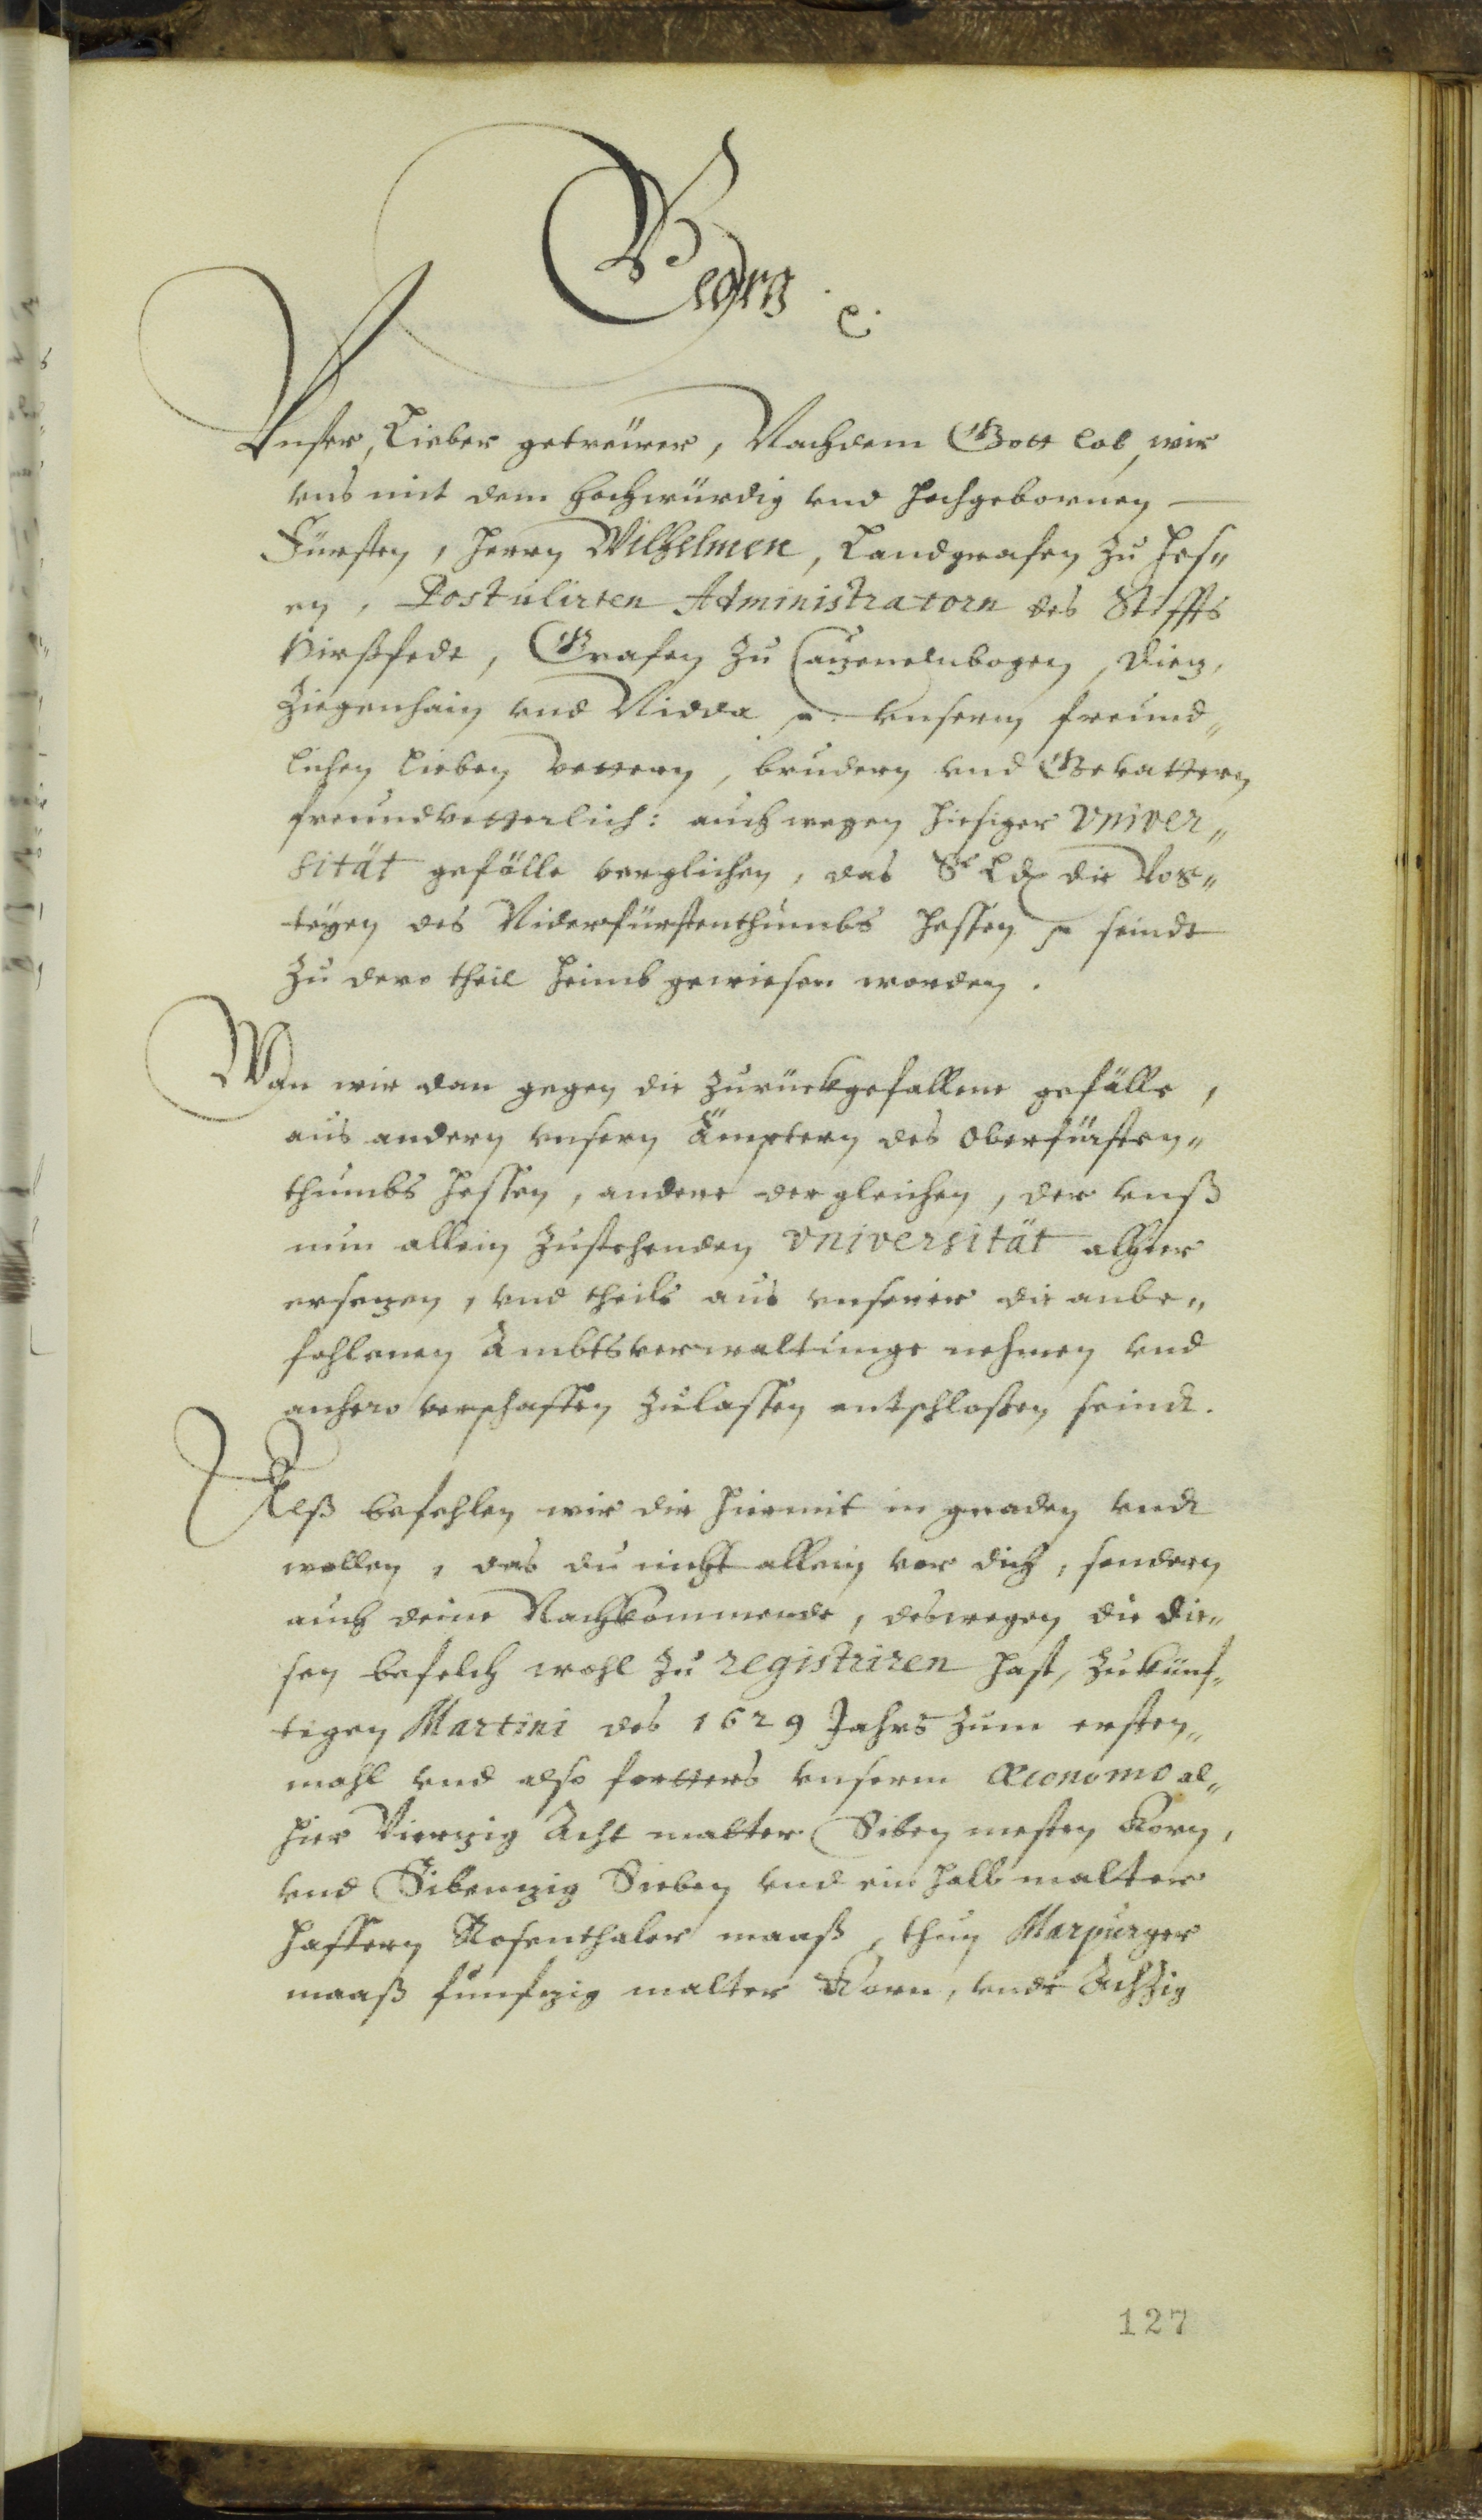 Georg ꝛc.
Vnser, Lieber getreüwer, Nachdem Gott lob, wir
vns mit dem Hochwürdig vnd hochgebornen
Fürsten, Herrn Wilhelmen, Landgrafen zu Hes„
en, Postulirten Administratorn des Stiffts
Hirßfedt, Grafen zu Catzenelnbogen, Dietz,
Ziegenhain vnd Nidda ꝛc. vnserm freund„
lichen lieben vettern, brudern vnd Gevattern
freundvetterlich: auch wegen hiesiger Vniver„
sität gefälle verglichen, das Se Ld die Vog„
teyen des Niderfürstenthumbs Hessen ꝛc seindt
zu dero theil heimb gewiesen worden.
Wan wir dan gegen die zurückgefallene gefälle,
aus andern vnsern Ämptern des Oberfürsten„
thumbs Hessen, andere dergleichen, der vnß
nun allein zustehenden Vniversität alhier
ersetzen, vnd theils aus vnserer dir anbe„
fohlenen Ambtsverwaltunge nehmen vnd
anhero verschaffen zulassen entschlossen seindt.
Alß befehlen wir dir hiermit in gnaden vndt
wollen, das du nicht allein vor dich, sondern
auch deine Nachkommende, deswegen du die„
sen befelch wohl zu registriren hast, zukünf„
tigen Martini des 1629 Jahrs zum ersten„
mahl vnd also fortters vnserm Œconomo al„
hier Viertzig Acht malter Siben mesten Korn,
vnd Sibentzig Sieben vnd ein halb malter
Haffern Rosenthaler maaß, thun Marpurger
maaß funfzig malter Korn, vndt Achzig
127